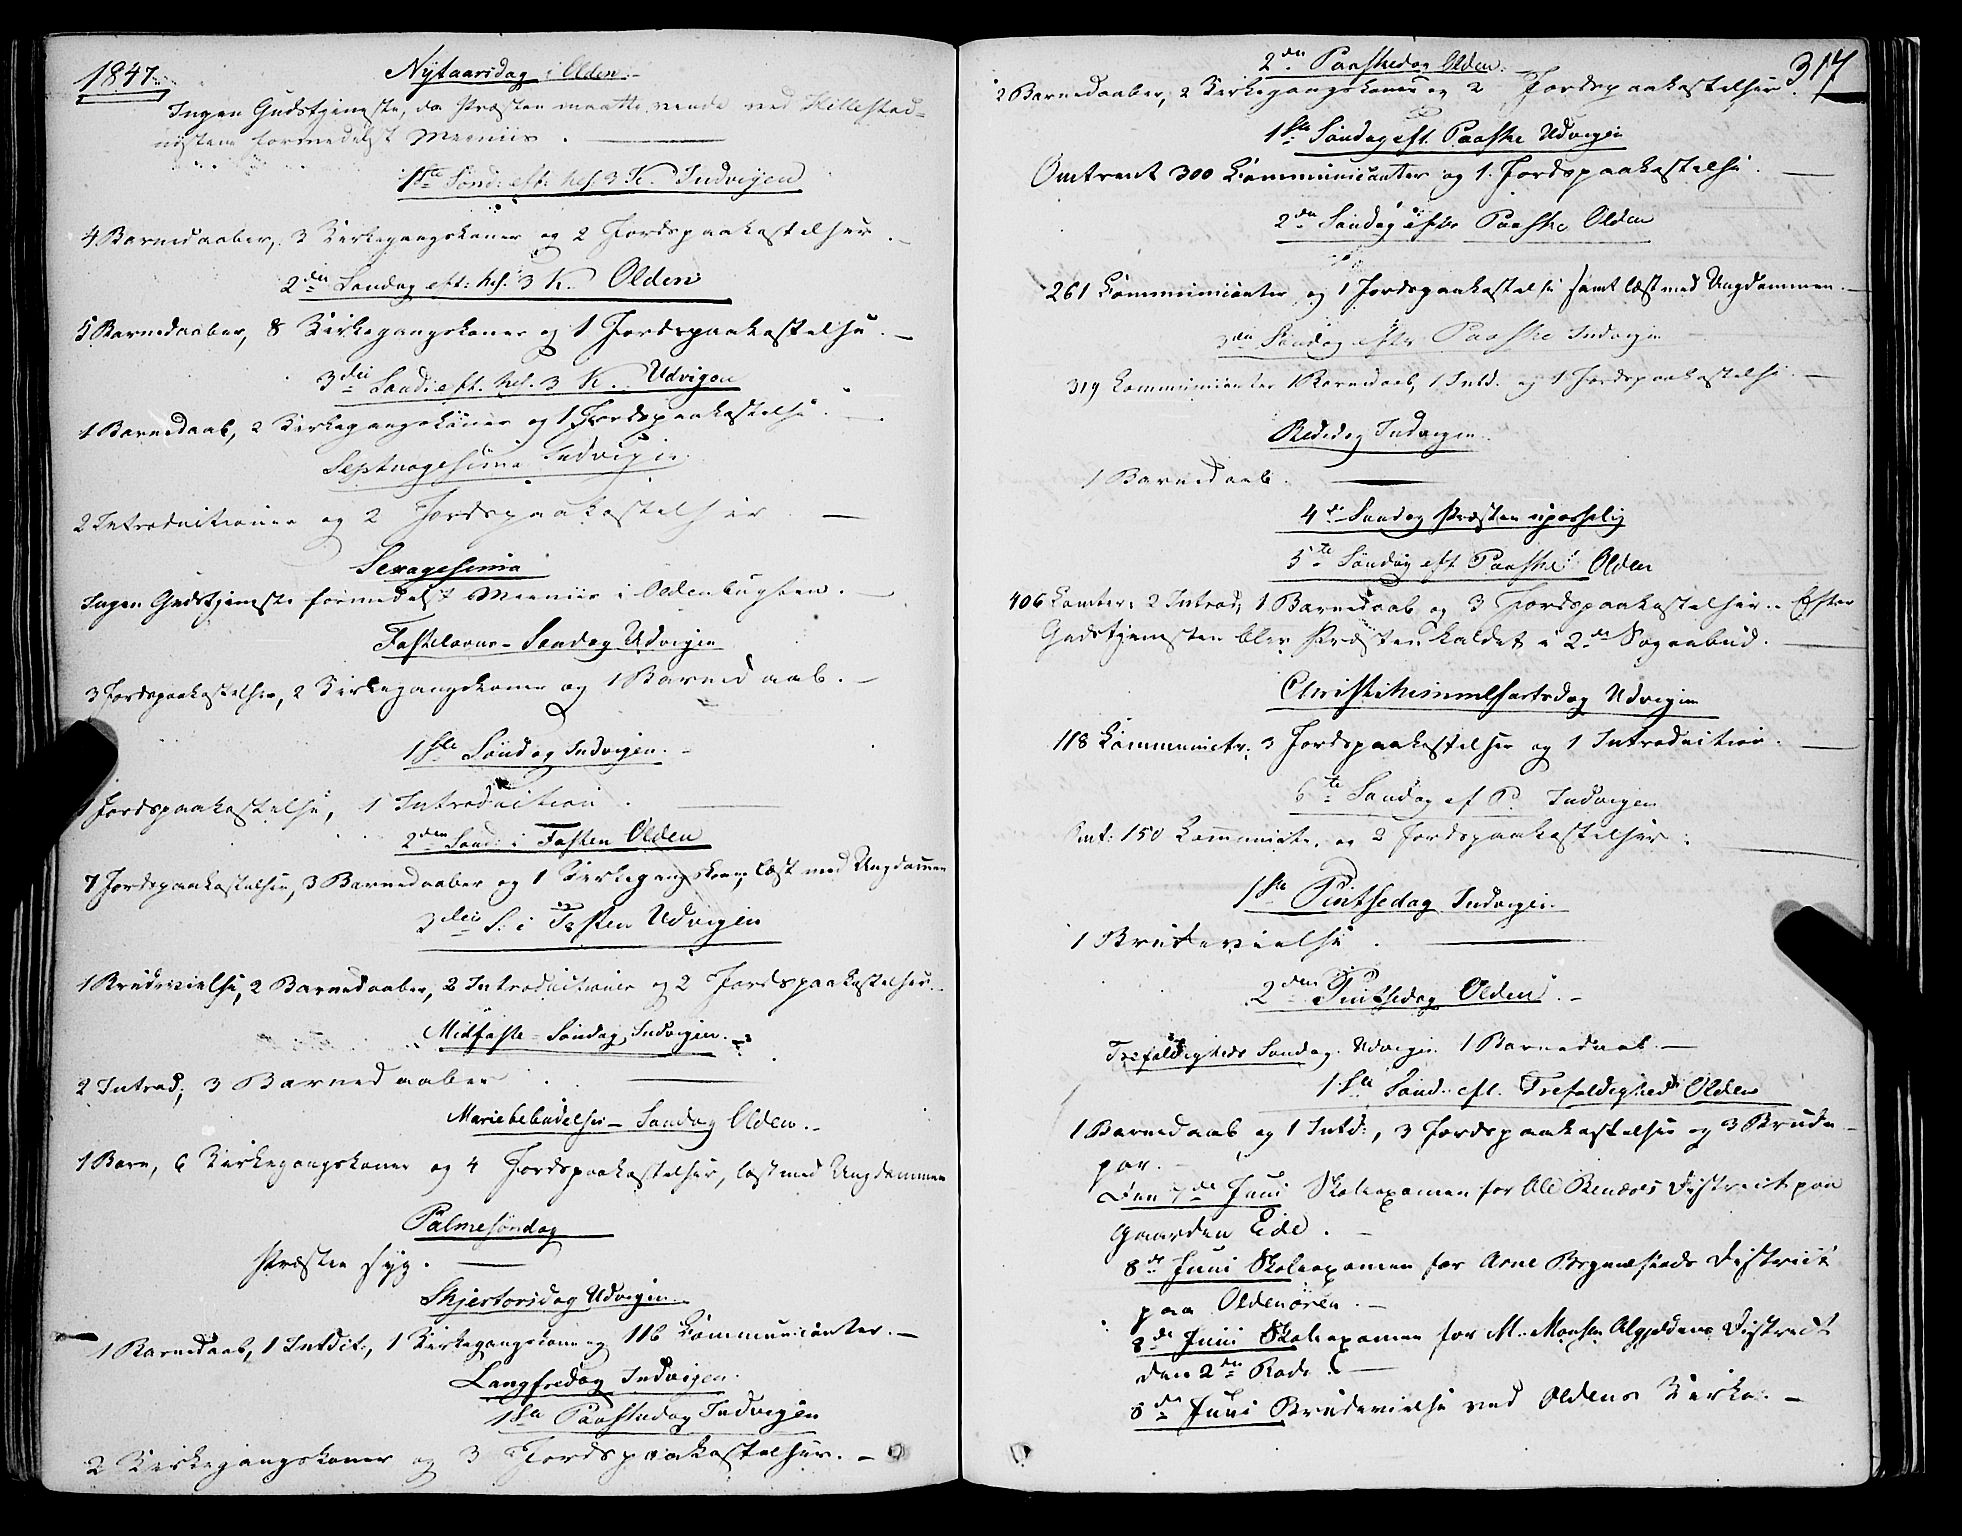 1847.
Nÿtaarsdag i Olden.
Ingen Gudstjeneste, da Præsten maatte vende ved Hillestad-
nistene formedelst Meeniis.
1ste Sønd: eft: hel. 3 K. Indvigen
4 Barnedaaber, 3 Kirkegangskoner og 2 Jordspaakastelser.
2den Søndag eft: hel. 3 K. Olden
5 Barnedaaber, 8 Kirkegangskoner og 1 Jordspaakastelse.
3die Sønd: eft. hel. 3 K. Udvigen
1 Barnedaab, 2 Kirkegangskoner og 1 Jordspaakastelse.
Septuagesima Indvigen
2 Introductioner og 2 Jordspaakastelser.
Sexagesima
Ingen Gudstjeneste formedelst Meeniis i Oldenbugten.
Fastelavns-Søndag Udvigen
3 Jordspaakastelser, 2 Kirkegangskoner og 1 Barnedaab.
1ste Søndag Indvigen.
1 Jordspaakastelse, 1 Introduction.
2den Sønd: i Fasten Olden
7 Jordspaakastelser, 3 Barnedaaber og 1 Kirkegangskone, læst med Ungdommen
3die S: i Fasten Udvigen
1 Brudevielse, 2 Barnedaaber, 2 Introductioner og 2 Jordspaakastelser.
Midfaste-Søndag Indvigen.
2 Introd, 3 Barnedaaber
Mariebebudelses-Søndag Olden.
1 Barn, 6 Kirkegangskoner og 4 Jordspaakastelser, læst med Ungdommen
Palmesøndag
Præsten syg.
Skjertorsdag Udvigen.
1 Barnedaab, 1 Intdit, 1 Kirkegangskone og 116 Communicanter.
Langfredag Indvigen.
1ste Paaskedag Indvigen
2 Kirkegangskoner og 3 Jordspaakastelser.
317
2den Paaskedag Olden.
2 Barnedaaber, 2 Kirkegangskoner og 2 Jordspaakastelser.
1ste Søndag eft. Paaske Udvigen
Omtrent 300 Communicanter og 1 Jordspaakastelse.
2den Søndag efter Paaske Olden
261 Communicanter og 1 Jordspaakastelse samt læst med Ungdommen.
3die Søndag efter Paaske Indvigen
319 Communicanter 1 Barnedaab, 1 Intd. og 1 Jordspaakastelse.
Bededag Indvigen
1 Barnedaab.
4de Søndag Præsten upasselig
5te Søndag eft Paaske Olden
406 Comter: 2 Introd, 1 Barnedaab og 3 Jordspaakastelser. Efter
Gudstjenesten blev Præsten kaldet i 2de Sognebud.
Christihimmelfartsdag Udvigen
118 Communictr. 3 Jordspaakastelser og 1 Introduction.
6te Søndag ef P. Indvigen
Omt: 150 Communicte. og 2 Jordspaakastelser.
1ste Pintsedag Indvigen.
1 Brudevielse.
2den Pintsedag Olden.
Trefoldigheds Søndag. Udvigen 1 Barnedaab.
1ste Sønd. eft. Trefoldighed Olden
1 Barnedaab og 1 Intd:, 3 Jordspaakastelser og 3 Brude-
par.
Den 7de Juni Skoleexamen for Ole District paa
Gaarden Eide.
8de Juni Skoleexamen for Arne District
paa Oldenøren.
8de Juni Skoleexamen for M. Monsen District
den 2den Rode.
8de Juni Brudevielse ved Oldens Kirke.